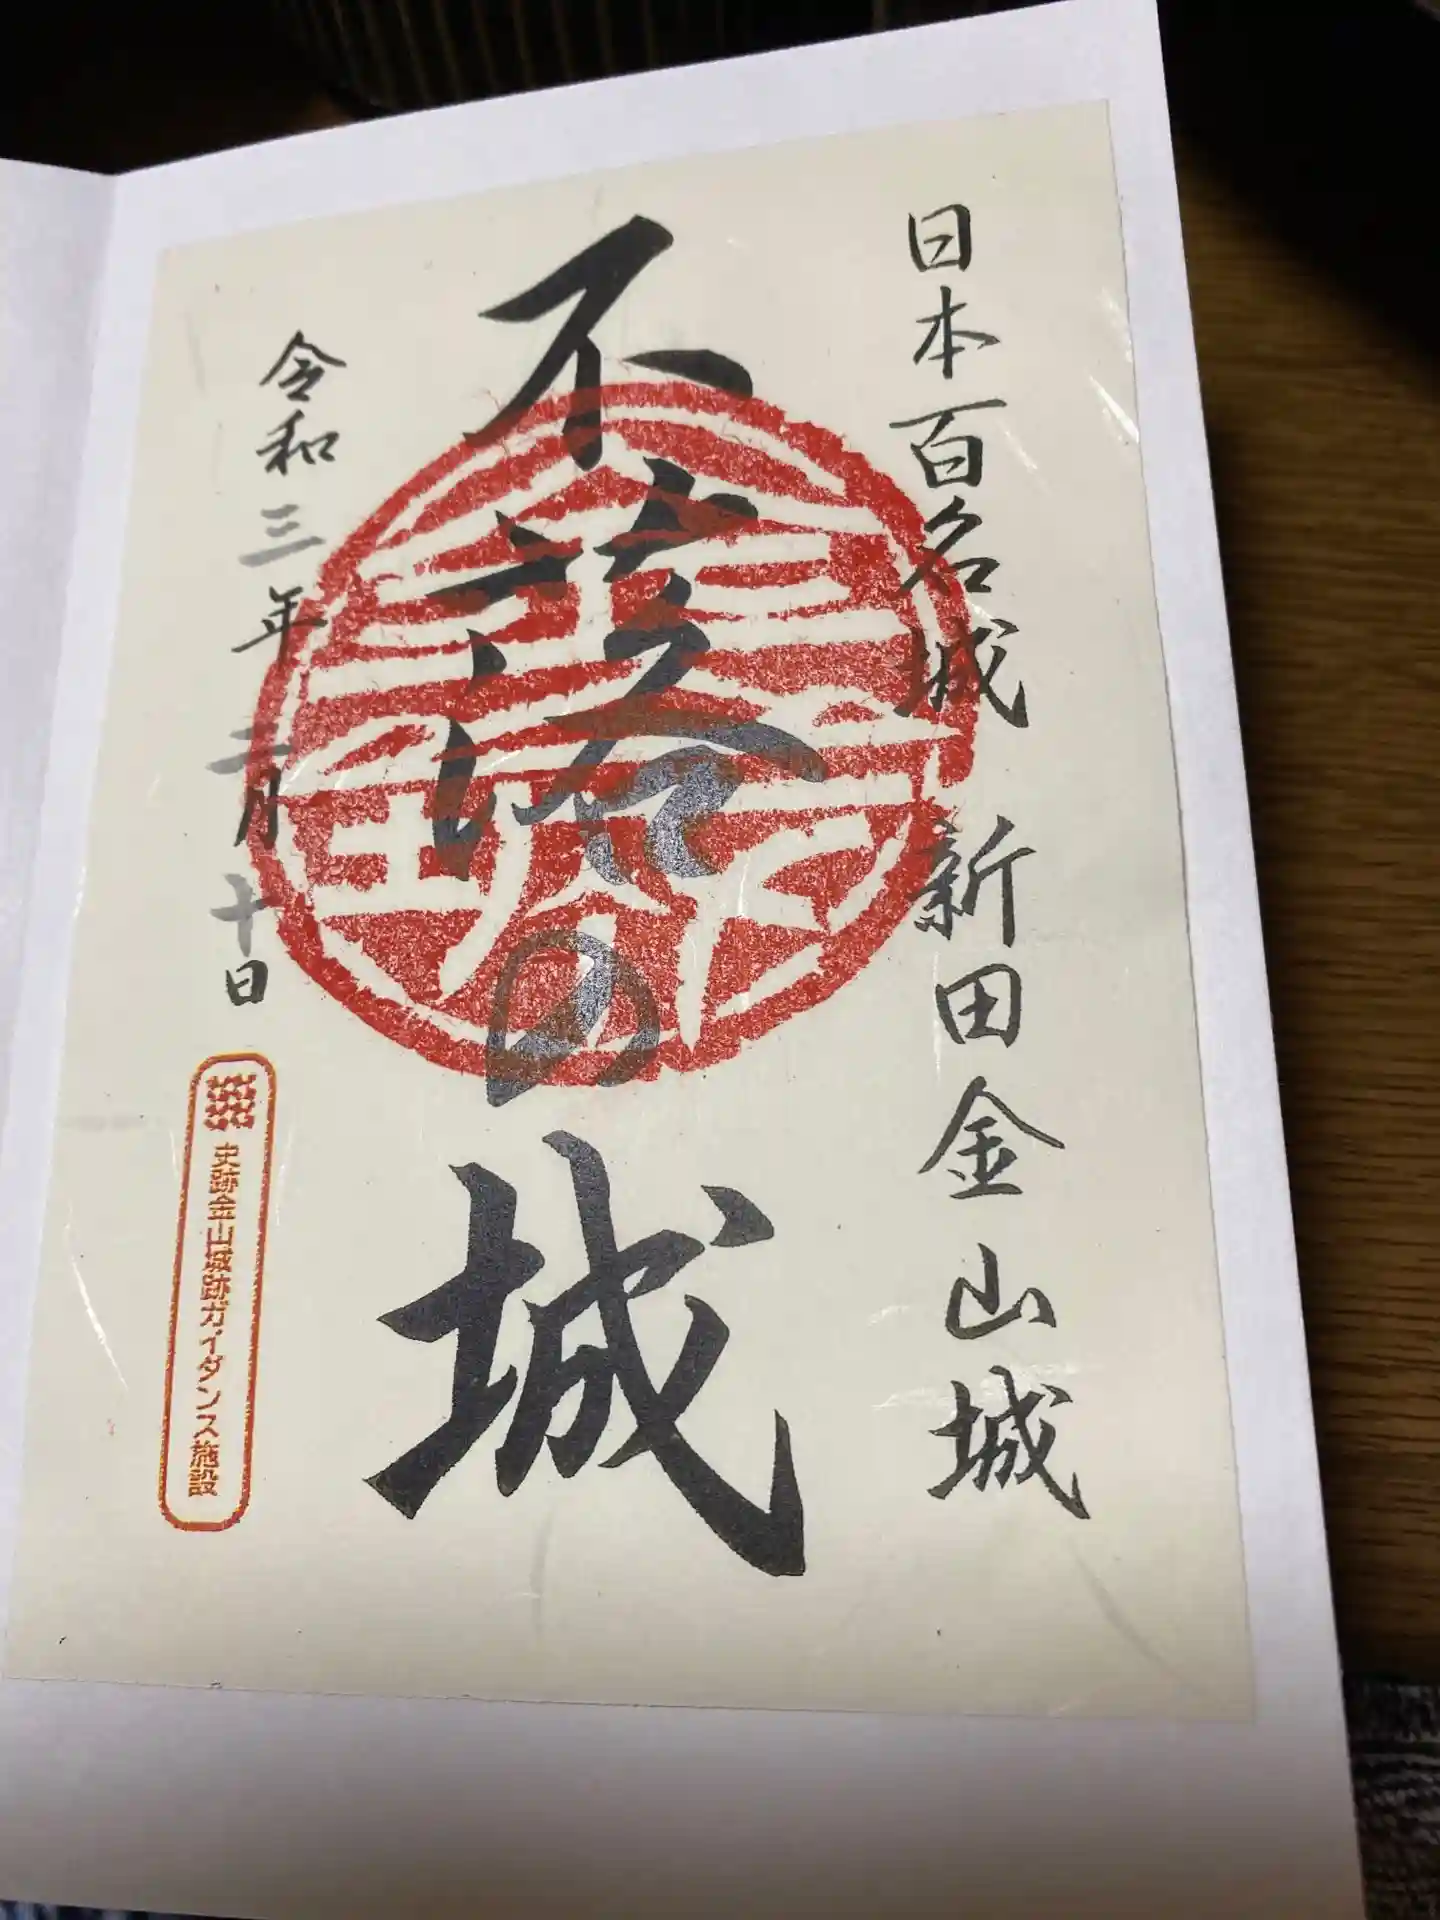 日本百名城 新田金山城
不落の城
令和三年 月十日
史跡金山城跡ガイダンス施設